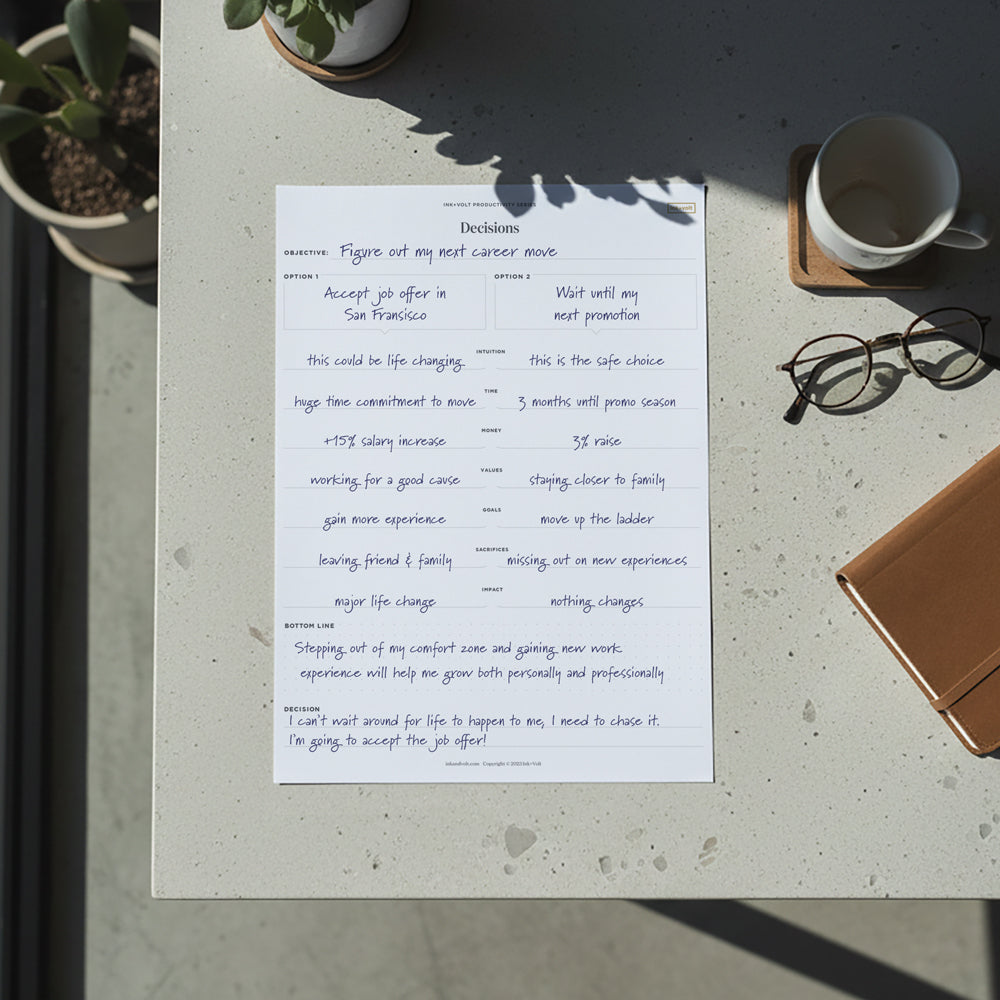 INK+VOLT PRODUCTIVITY SERIES
ink+volt
Decisions
OBJECTIVE: Figure out my next career move
OPTION 1
Accept job offer in
San Fransisco
OPTION 2
Wait until my
next promotion
INTUITION
this could be life changing
this is the safe choice
TIME
huge time commitment to move
3 months until promo season
MONEY
+15% salary increase
3% raise
VALUES
working for a good cause
staying closer to family
GOALS
gain more experience
move up the ladder
SACRIFICES
leaving friend & family
missing out on new experiences
IMPACT
major life change
nothing changes
BOTTOM LINE
Stepping out of my comfort zone and gaining new work
experience will help me grow both personally and professionally
DECISION
I can't wait around for life to happen to me, I need to chase it.
I'm going to accept the job offer!
inkandvolt.com Copyright © 2023 Ink+Volt